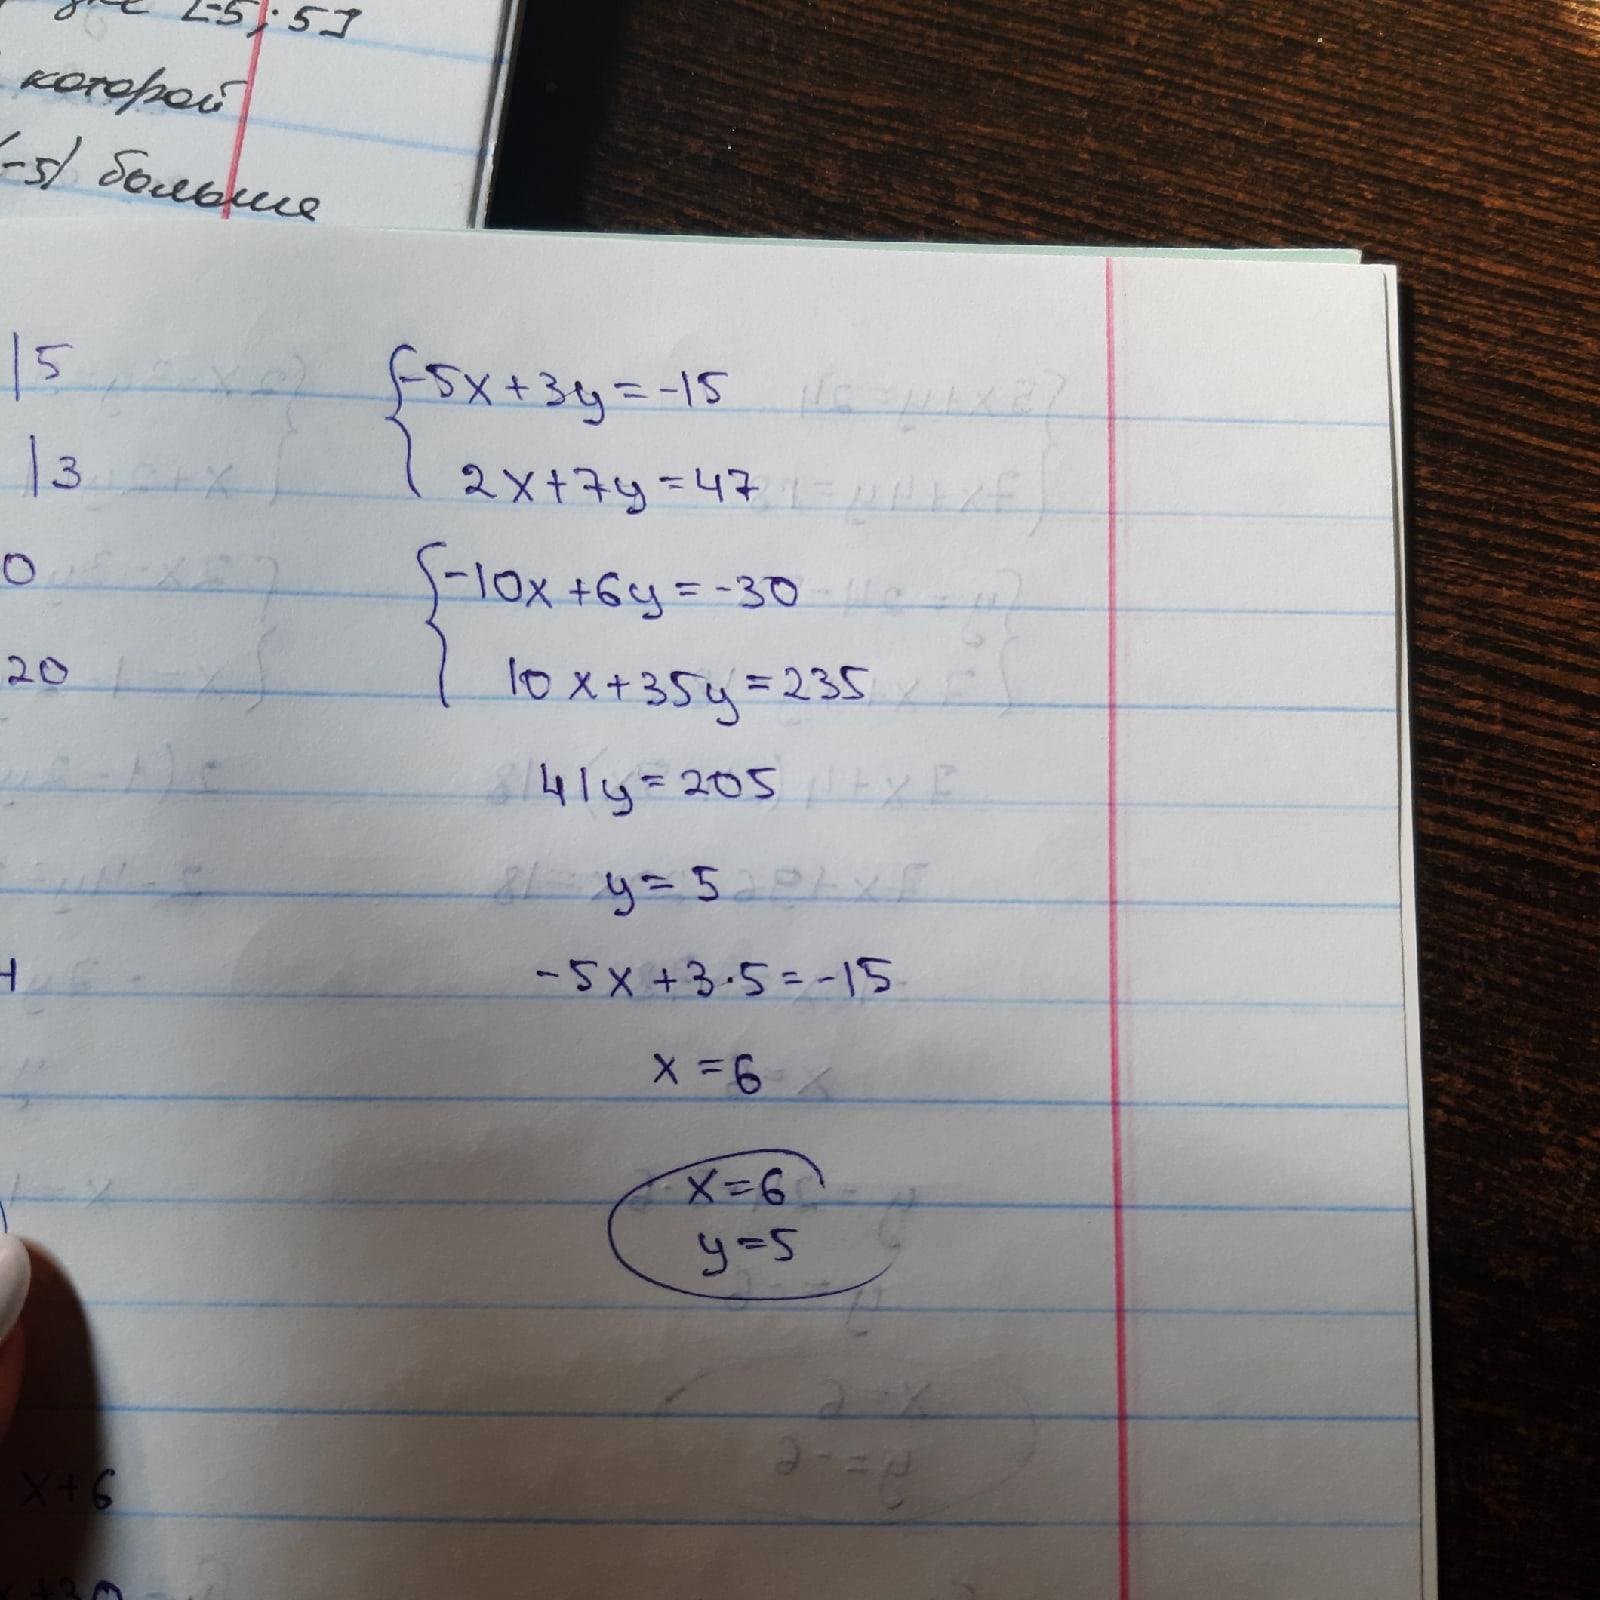 [-5; 5]
которой
(-5) больше
|5
|3
0
20
{-5x+3y=-15
2x+7y=47
{-10x+6y=-30
10x+35y=235
41y=205
y=5
-5x+3·5=-15
x=6
x=6
y=5
x+6
+30